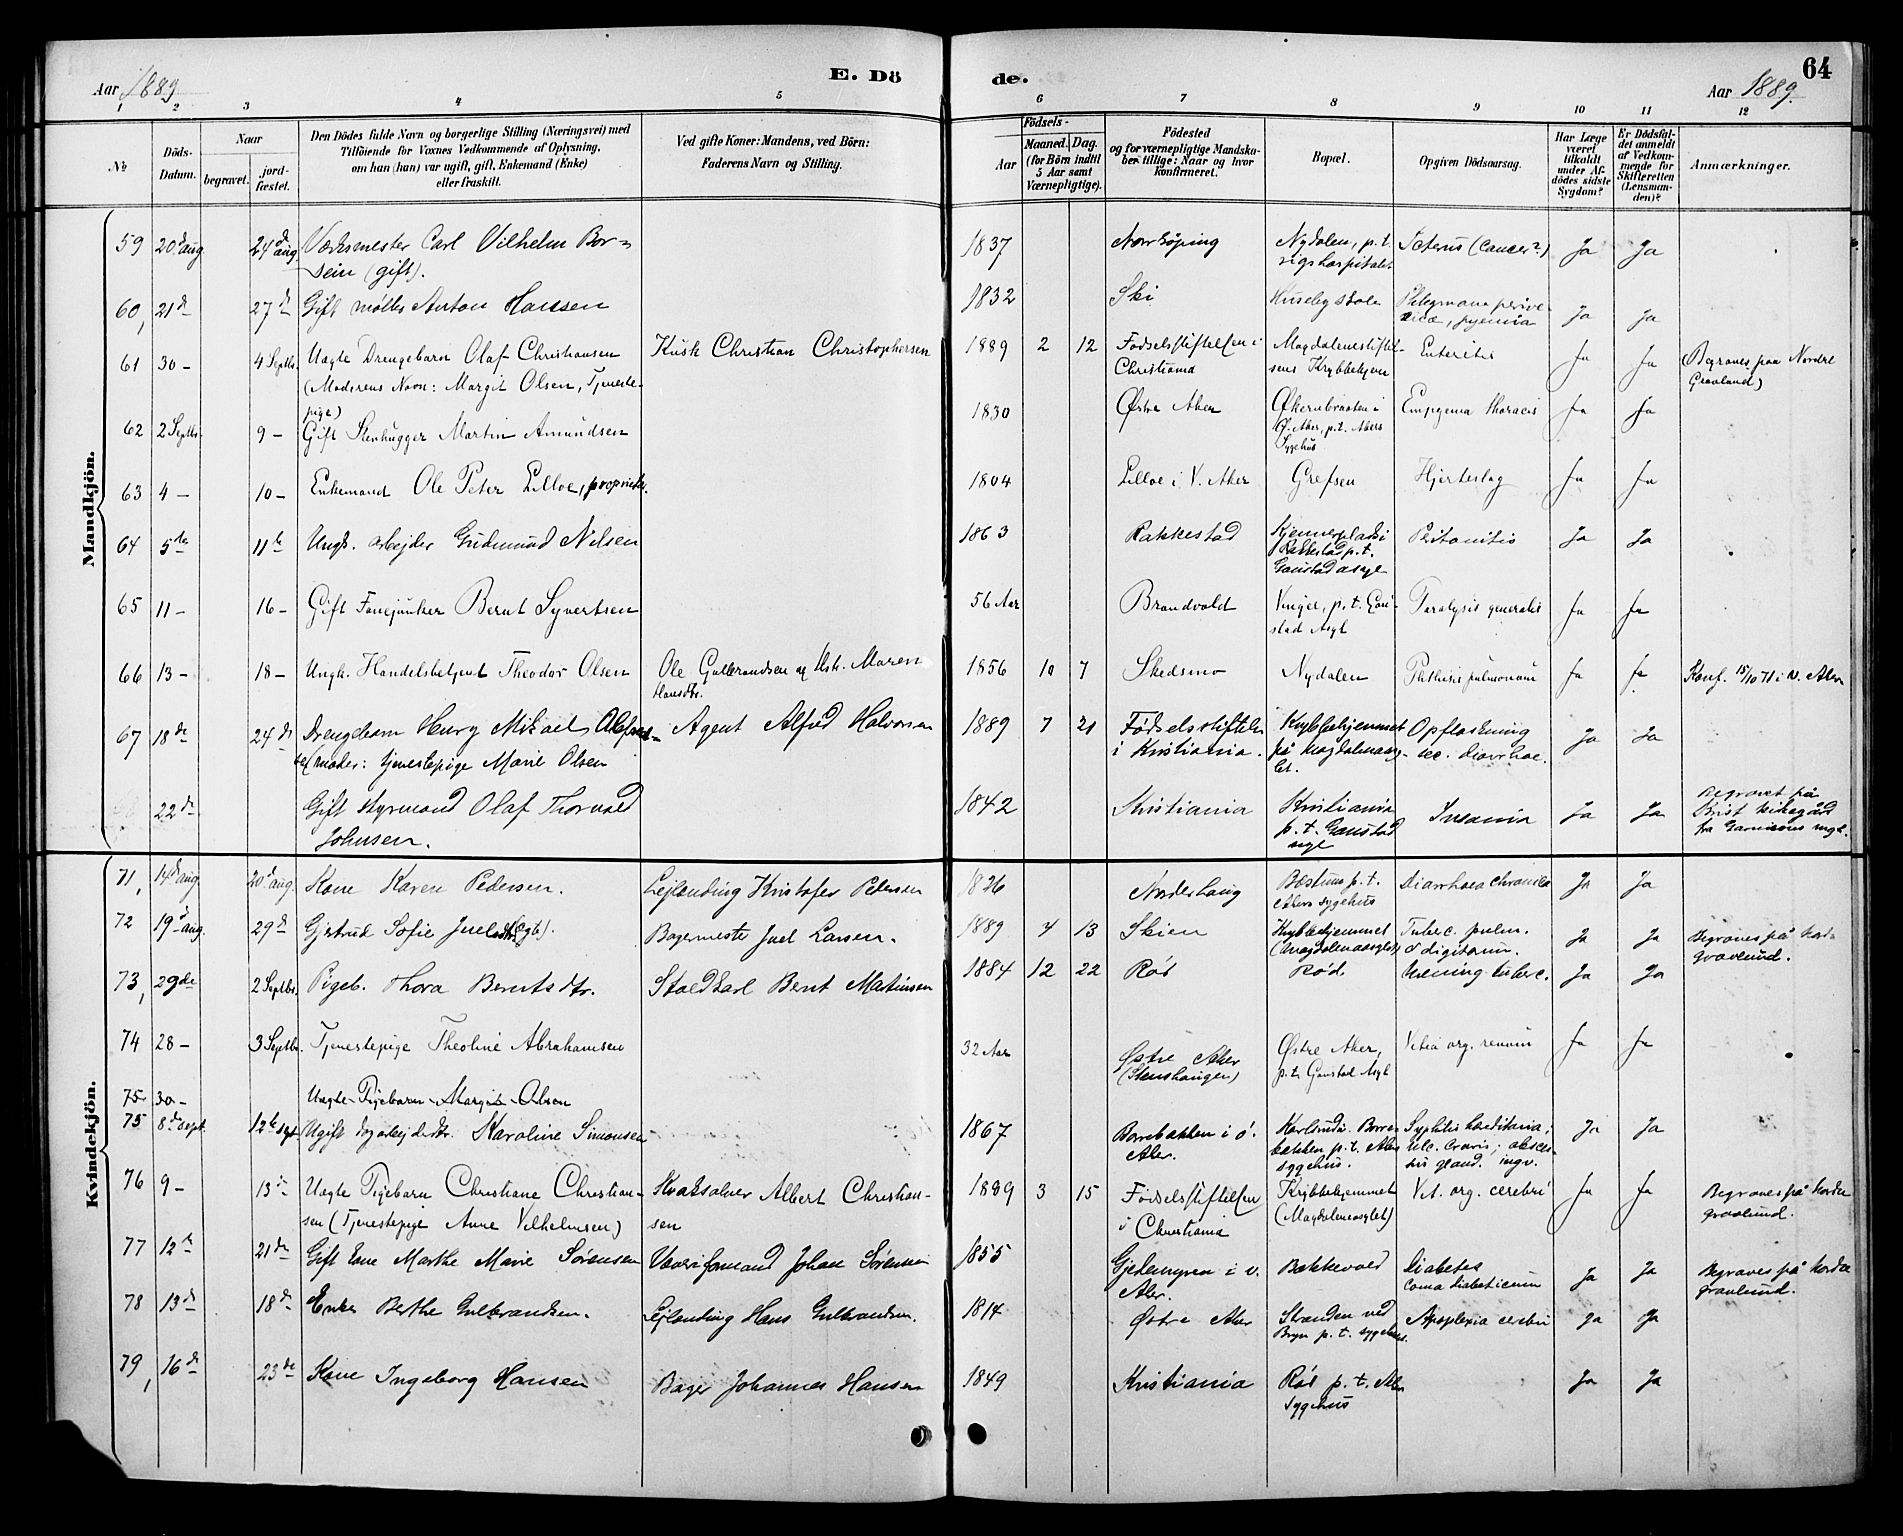 Aar 1889
E. Dö
de.
64
Aar 1889.
1 2 3 4 5 6 7 8 9 10 11 12
No
Döds-
Datum.
Naar
begravet.
jord-
fæstet.
Den Dödes fulde Navn og borgerlige Stilling (Næringsvei) med
Tilföiende for Voxnes Vedkommende af Oplysning,
om han (hun) var ugift, gift, Enkemand (Enke)
eller fraskilt.
Ved gifte Koner: Mandens, ved Börn:
Faderens Navn og Stilling.
Födsels-
Aar
Maaned. Dag.
(for Börn indtil
5 Aar samt
Værnepligtige).
Födested
og for værnepligtige Mandska-
ber tillige: Naar og hvor
konfirmeret.
Bopæl.
Opgiven Dödsaarsag.
Har Læge
været
tilkaldt
under Af-
dödes sidste
Sygdom?
Er Dödsfal-
det anmeldt
af Vedkom-
mende for
Skifteretten
(Lensman-
den)?
Anmærkninger.
Mandkjön.
59 20d aug 24d aug Værksmester Carl Vilhelm Bor-
sein (gift). 1837 Norrköping Nydalen, p. t.
rigshospitalet Icterus (cancer?) Ja Ja
60, 21d 27d Gift møller Anton Hansen 1832 Ski Huseby skole Phlegmone
, pyemia Ja Ja
61 30 - 4 Septbr. Uægte Drengebarn Olaf Christiansen
(Moderens Navn: Margit Olsen, Tjeneste-
pige) Kusk Christian Christophersen 1889 2 12 Fødselsstiftelsen i
Christiania Magdalenestiftel-
sens Krybbehjem Enteritis Ja Ja Begraves paa Nordre
Gravlund)
62 2 Septbr. 9 - Gift Stenhugger Martin Amundsen 1830 Østre Aker Økernbraaten i
Ø. Aker, p. t. Akers
Sygehus Empyema thoracis Ja Ja
63 4 - 10 - Enkemand Ole Peter Lilloe, proprietær. 1804 Lilloe i V. Aker Grefsen Hjerteslag Ja Ja
64 5te 11te Ungk. arbejder Gudmund Nilsen 1863 Rakkestad
Rakkestad p. t.
Gaustad asyl Peritonitis Ja Ja
65 11 - 16 - Gift Fanejunker Bernt Syvertsen 56 Aar Brandvold Vinger, p. t. Gau-
stad Asyl Paralysis generalis Ja Ja
66 13 - 18 - Ungk. Handelsbetjent Theodor Olsen Ole Gulbrandsen og Ust. Maren
Hansdtr. 1856 10 7 Skedsmo Nydalen Phthisis pulmonum Ja Ja Konf. 15/10 71 i V. Aker
67 18de 24de Drengebarn Henry Mikael
(moder: tjenestepige Marie Olsen Agent Alfred Halvorsen 1889 7 21 Fødselsstiftelsen
i Kristiania. Krybbehjemmet
på Magdalenaasy-
let. Opfloskning
sec. diarrhoe. Ja Ja
22de Gift styrmand Olaf Thorvald
Johnsen. 1842 Kristiania Kristiania
p. t. Gaustad
asyl Insania Ja Ja Begravet på
Krist kirkegård
fra Garnisons mgh.
Kvindekjön.
71, 14d aug 20d aug. Kone Karen Pedersen. Lejlænding Kristofer Pedersen 1826 Norderhaug Bestum p. t.
Akers sygehus Diarrhoea chronica Ja Ja
72 19d aug. 29d Gjertrud Sofie Juelsdtr. (Ægte). Bagermester Juel Larsen. 1889 4 13 Skien Krybbehjemmet
(Magdalenaasylet) Tuberc. pulm.
& digitorum. Ja Ja Begraves på Nordre
gravlund.
73, 29de 2 Septbr. Pigeb. Thora Berntsdtr. Staldkarl Bernt Martinsen 1884 12 22 Röd Röd. Mening. tuberc. Ja Ja
74 28 - 3 Septbr. Tjenestepige Theoline Abrahamsen 32 Aar Østre Aker
(Stenshaugen) Østre Aker,
p. t. Gaustad Asyl Vitia org. renum Ja Ja
75 30 - Uægte Pigebarn Margit Olsen
75 8de sept. 12te sept Ugift Karoline Simonsen 1867 Borrebakken i ö.
Aker. Borre-
bakken p. t. Akers
sygehus. Syphilis hereditaria;
ulc. cruris; absces-
sus gland. ingv. Ja Ja
76 9 - 13de Uægte Pigebarn Christiane Christian-
sen (Tjenestepige Anne Vilhelmsen) Kvaksalver Albert Christian-
sen 1889 3 15 Fødselsstiftelsen
i Christiania Krybbehjemmet
(Magdaleneasylet) Vit. org. cerebri Ja Ja Begraves på Nordre
gravlund.
77 12te 21de Gift kone Marthe Marie Sørensen Væveriformand Johan Sørensen 1855 Gjetemyren i v.
Aker. Bakkevold Diabetes
Coma diabeticum Ja Ja Begraves på Nordre
gravlund.
78 13de 18de Enke Berthe Gulbrandsen. Lejlænding Hans Gulbrandsen. 1814 Østre Aker Stranden ved
Bryn p. t. sygehus. Apoplexia cerebri Ja Ja
79, 16de 23de Kone Ingeborg Hansen Bager Johannes Hansen 1849 Kristiania Röd p. t. Aker
Sygehus Ja Ja